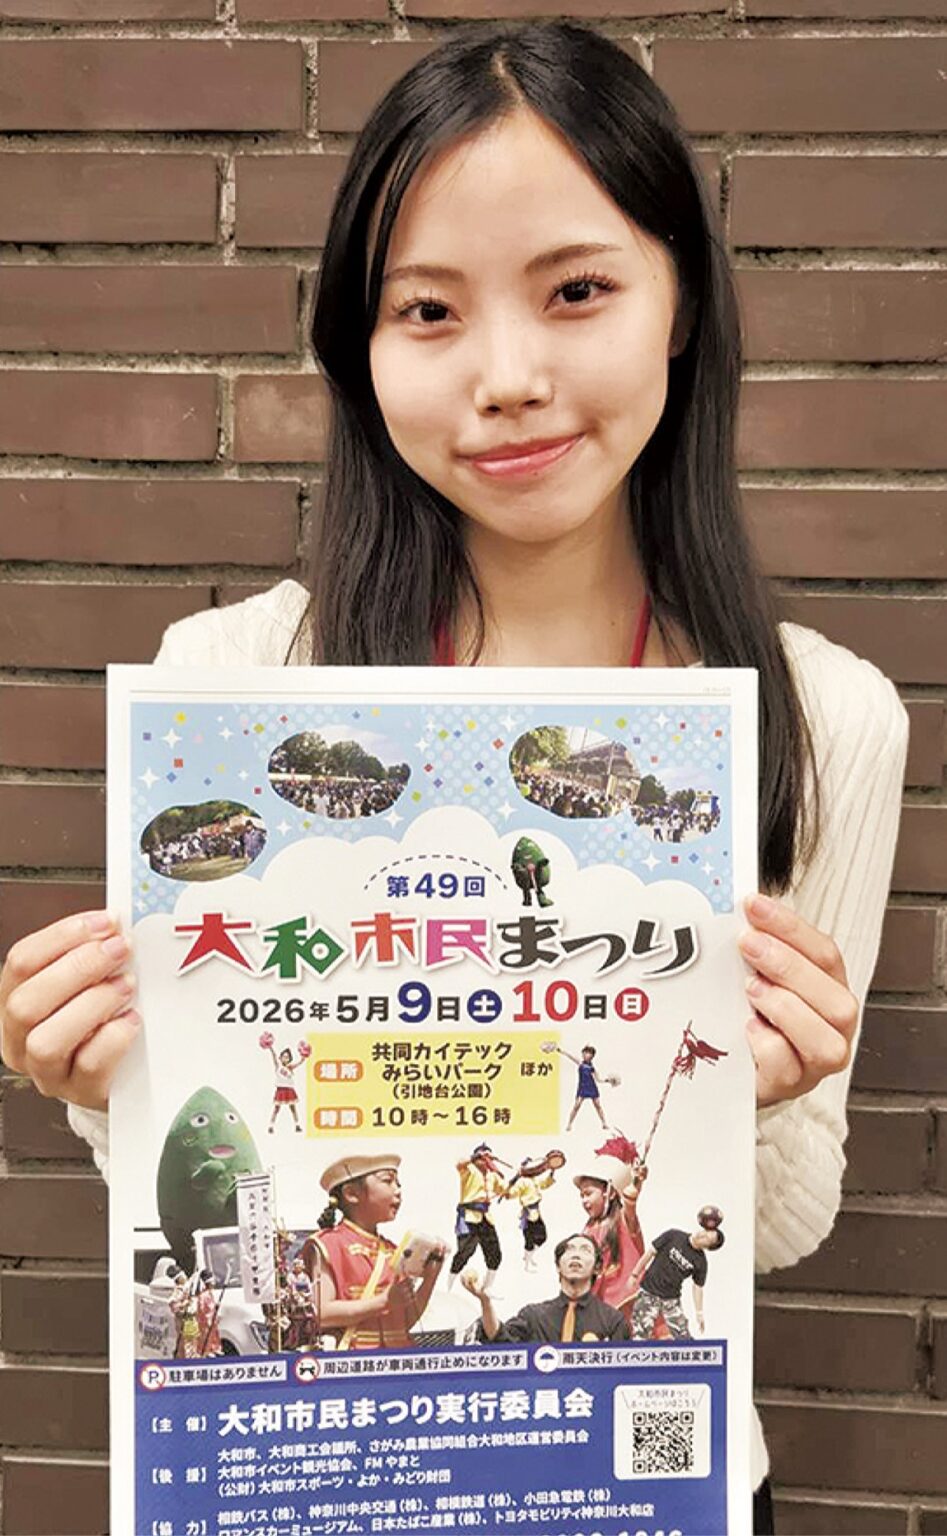 第49回
大和市民まつり
2026年5月9日土10日日
場所 共同カイテック みらいパーク (引地台公園) ほか
時間 10時～16時
駐車場はありません 周辺道路が車両通行止めになります 雨天決行(イベント内容は変更)
【主 催】大和市民まつり実行委員会
大和市民まつり
ホームページはこちら
【後 援】大和市、大和商工会議所、さがみ農業協同組合大和地区運営委員会
大和市イベント観光協会、FMやまと
(公財)大和市スポーツ・よか・みどり財団
【協 力】相鉄バス(株)、神奈川中央交通(株)、相模鉄道(株)、小田急電鉄(株)
ロマンスカーミュージアム、日本たばこ産業(株)、トヨタモビリティ神奈川大和店